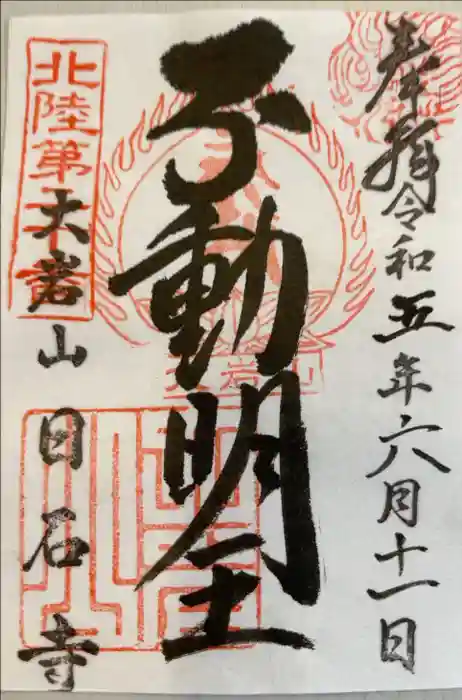 奉拝
令和五年六月十一日
不動明王
北陸第
大岩山
日石寺
大岩山